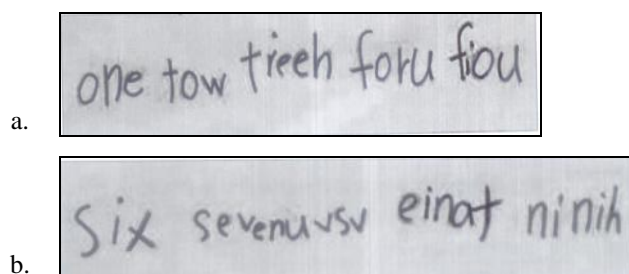 a. one tow treeh foru fiou
b. six sevenuvsv einat ninih